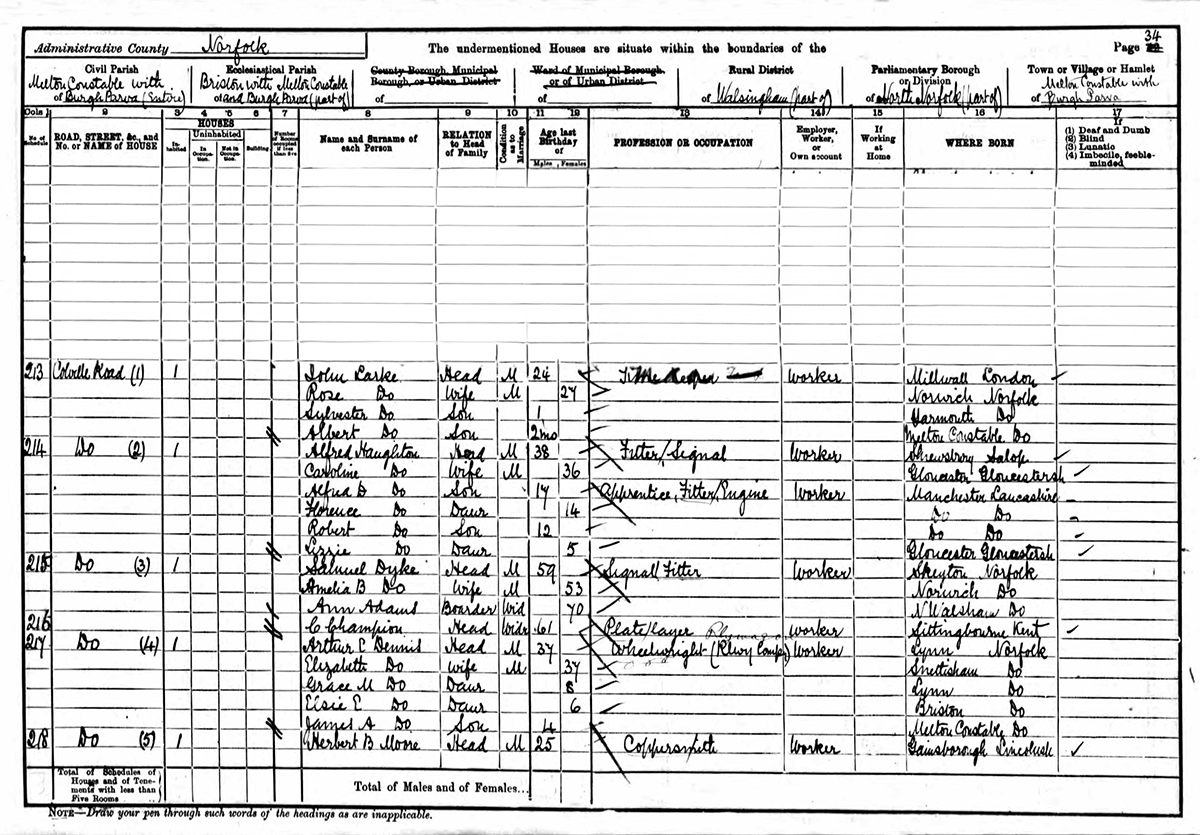 Administrative County Norfolk
The undermentioned Houses are situate within the boundaries of the
34
Page
Civil Parish
Ecclesiastical Parish
County Borough, Municipal Borough, or Urban District
Ward of Municipal Borough or of Urban District
Rural District
Parliamentary Borough or Division
Town or Village or Hamlet
of Melton Constable with Burgh Parva (Entire)
of Briston with Melton Constable and Burgh Parva (part of)
of
of
of Walsingham (part of)
of North Norfolk (part of)
of Melton Constable with Burgh Parva
Cols 1 2 3 4 5 6 7 8 9 10 11 12 13 14 15 16 17
No. of Schedule
ROAD, STREET, &c., and No. or NAME of HOUSE
HOUSES
Inhabited
Uninhabited
In Occupation.
Not in Occupation.
Building.
Number of Rooms occupied if less than five
Name and Surname of each Person
RELATION to Head of Family
Condition as to Marriage
Age last Birthday of
Males
Females
PROFESSION OR OCCUPATION
Employer, Worker, or Own account
If Working at Home
WHERE BORN
If
(1) Deaf and Dumb
(2) Blind
(3) Lunatic
(4) Imbecile, feeble-minded
213 Colville Road (1) 1 John Larke Head M 24 Worker Millwall London
Rose Do Wife M 27 Norwich Norfolk
Sylvester Do Son 1 Yarmouth Do
Albert Do Son 2mo Melton Constable Do
214 Do (2) 1 Alfred Haughton Head M 38 Fitter/Signal Worker Shrewsbury Salop
Caroline Do Wife M 36 Gloucester Gloucestersh
Alfred D Do Son 17 Apprentice, Fitter/Engine Worker Manchester Lancashire
Florence Do Daur 14 Do Do
Robert Do Son 12 Do Do
Lizzie Do Daur 5 Gloucester Gloucestersh
215 Do (3) 1 Samuel Dyke Head M 59 Signal Fitter Worker Skeyton Norfolk
Amelia B Do Wife M 53 Norwich Do
Ann Adams Boarder Wid 70 N Walsham Do
216 C Champion Head Widr 61 Platelayer Worker Sittingbourne Kent
217 Do (4) 1 Arthur C Dennis Head M 37 Wheelwright (Rlwy Comp) Worker Lynn Norfolk
Elizabeth Do Wife M 37 Snettisham Do
Grace M Do Daur 8 Lynn Do
Elsie E Do Daur 6 Briston Do
James A Do Son 4 Melton Constable Do
218 Do (5) 1 Herbert B Moore Head M 25 Coppersmith Worker Gainsborough Lincolnsh
Total of Schedules of Houses and of Tenements with less than Five Rooms
Total of Males and of Females...
NOTE—Draw your pen through such words of the headings as are inapplicable.